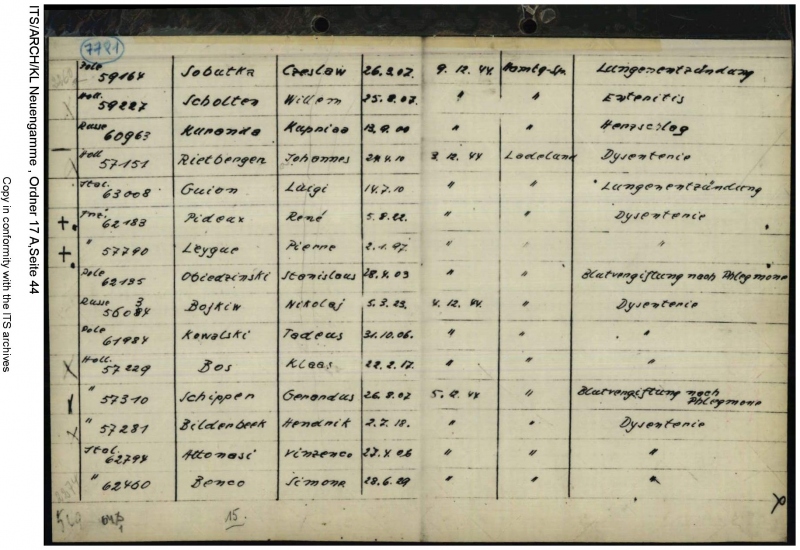 ITS/ARCH/KL Neuengamme , Ordner 17 A,Seite 44
Copy in conformity with the ITS archives
7721
Pole 59164 Sobutka Czeslaw 26.2.07. 9.12.44 Hambg-Sp. Lungenentzündung
Holl. 59227 Scholten Willem 25.8.07. " " Enteritis
Russe 60963 Kuranda " " Herzschlag
Holl 57151 Rietbergen Johannes 3.12.44 Ladelund Dysenterie
Ital. 63008 Guion Luigi 14.7.10 " " Lungenentzündung
+. Frz. 62183 Pideux René 5.8.22. " " Dysenterie
+. " 57790 Leygue Pierre 2.1.97 " " "
Pole 62195 Obiedzinski Stanislaus 28.4.03 " " Blutvergiftung nach Phlegmone
Russe 56084 3 Bojkiw Nikolaj 5.3.23. 4.12.44. " Dysenterie
Pole 61984 Kowalski Tadeus 31.10.06. " " "
X Holl. 57229 Bos Klaas 22.2.17. " " "
" 57310 Schipper Gerardus 26.8.07 5.12.44 " Blutvergiftung nach
Phlegmone
X " 57281 Bilderbeek Hendrik 2.7.18. " " Dysenterie
Ital. 62794 Attonasi Vinzenco 27.4.26 " " "
" 62460 Benco Simone 28.6.29 " " "
15.